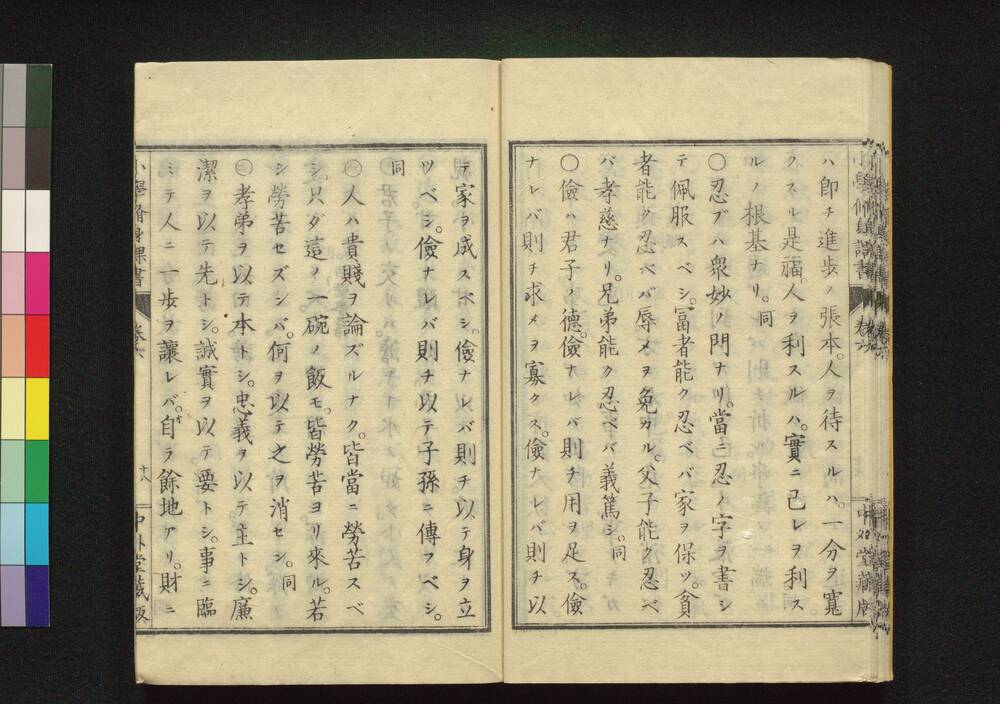 ハ即チ進歩ノ張本。人ヲ待スルハ。一分ヲ寛
クスル是福。人ヲ利スルハ。實ニ己レヲ利ス
ルノ根基ナリ。同
〇忍ブハ衆妙ノ門ナリ。當ニ忍ノ字ヲ書シ
テ佩服スベシ。冨者能ク忍ベバ家ヲ保ツ。貪
者能ク忍ベバ辱メヲ免カル。父子能ク忍ベ
バ孝慈ナリ。兄弟能ク忍ベバ義篤シ。同
〇儉ハ君子ノ德。儉ナレバ則チ用ヲ足ス。儉
ナレバ則チ求メヲ寡クス。儉ナレバ則チ以
テ家ヲ成スベシ。儉ナレバ則チ以テ身ヲ立
ツベシ。儉ナレバ則チ以テ子孫ニ傳フベシ。
同
〇人ハ貴賤ヲ論ズルナク。皆當ニ勞苦スベ
シ。只ダ這ノ一碗ノ飯モ。皆勞苦ヨリ來ル。若
シ勞苦セズンバ。何ヲ以テ之ヲ消セン。同
〇孝弟ヲ以テ本トシ。忠義ヲ以テ主トシ。廉
潔ヲ以テ先トシ。誠實ヲ以テ要トシ。事ニ臨
ミテ人ニ一歩ヲ讓レバ。自ラ餘地アリ。財ニ
小學脩身課書
卷六
十八
中外堂藏版